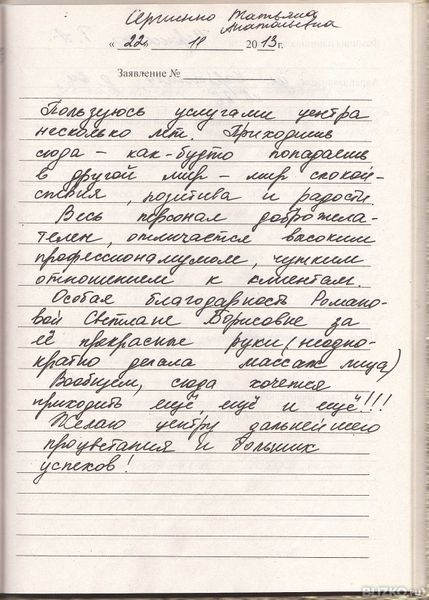 Сергиенко Татьяна
Анатольевна
« 22 » 11 2013 г.
Заявление №
Пользуюсь услугами центра
несколько лет. Приходишь
сюда – как-будто попадаешь
в другой мир – мир спокой-
ствия, позитива и радости.
Весь персонал доброжела-
телен, отличается высоким
профессионализмом, чутким
отношением к клиентам.
Особая благодарность Романо-
вой Светлане Борисовне за
её прекрасные руки (неодно-
кратно делала массаж лица)
Вообщем, сюда хочется
приходить ещё, ещё и ещё!!!
Желаю центру дальнейшего
процветания и больших
успехов!
BLIZKO.ru